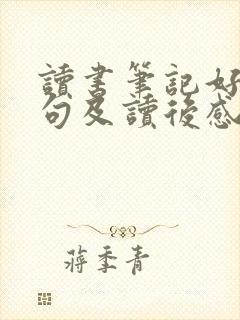 讀書筆記好
句及讀後感
蔣季青